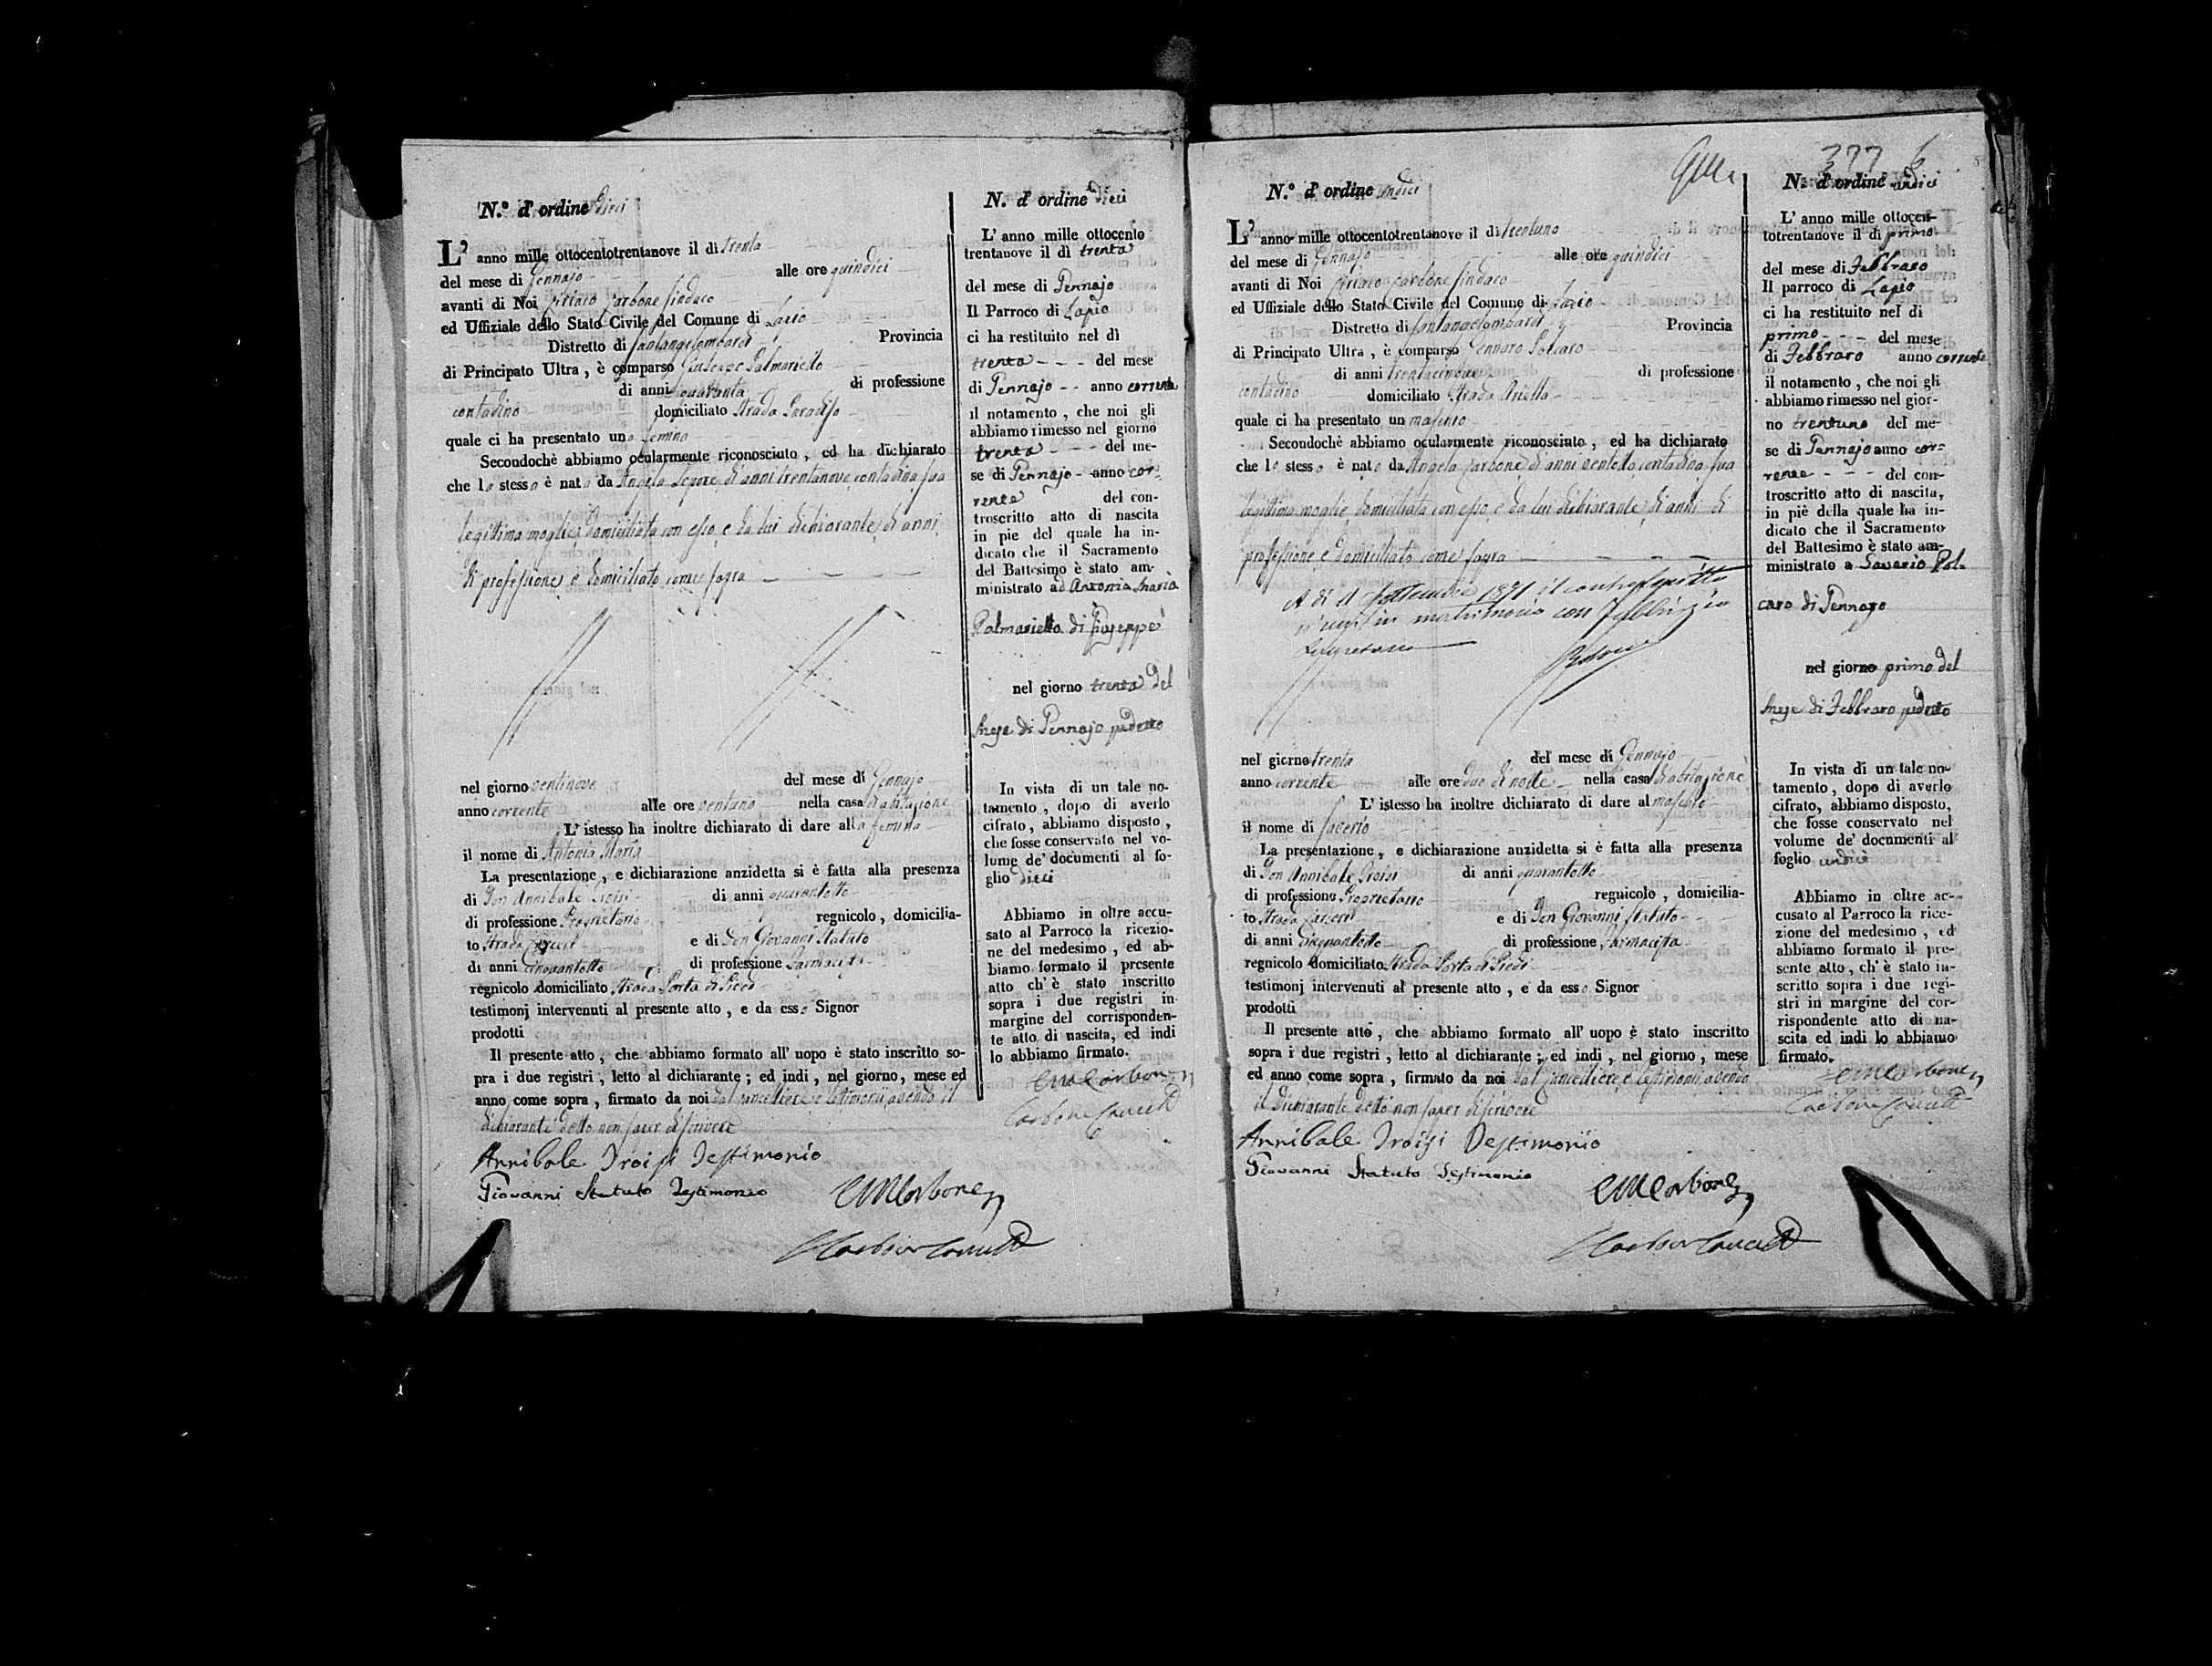 N.º d' ordine dieci
L' anno mille ottocentotrentanove il dì trenta
del mese di Gennajo alle ore quindici
avanti di Noi Ciriaco Carbone Sindaco
ed Uffiziale dello Stato Civile del Comune di Lapio
Distretto di Santangelombardi Provincia
di Principato Ultra , è comparso Giuseppe Palmariello
di anni quaranta di professione
contadino domiciliato Strada Paradiso
quale ci ha presentato una femina
Secondochè abbiamo ocularmente riconosciuto , ed ha dichiarato
che la stessa è nata da Angela Lepore di anni trentanove contadina sua
legittima moglie, domiciliata con esso, e da lui dichiarante, di anni
di professione, e domiciliato come sopra
nel giorno ventinove del mese di Gennajo
anno corrente alle ore ventuno nella casa di abitazione
L' istesso ha inoltre dichiarato di dare alla femina
il nome di Antonia Maria
La presentazione , e dichiarazione anzidetta si è fatta alla presenza
di Don Annibale Troisi di anni quarantotto
di professione Proprietario regnicolo , domicilia-
to Strada e di Don Giovanni Statuto
di anni cinquantotto di professione Farmacista
regnicolo domiciliato Strada Porta di Piedi
testimonj intervenuti al presente atto , e da esso Signor
prodotti
Il presente atto , che abbiamo formato all' uopo è stato inscritto so-
pra i due registri , letto al dichiarante ; ed indi , nel giorno, mese ed
anno come sopra , firmato da noi dal Cancelliere, e testimonii avendo il
dichiarante detto non saper di scrivere
Annibale Troisi Testimonio
Giovanni Statuto Testimonio
N. d' ordine dieci
L' anno mille ottocento
trentanove il dì trenta
del mese di Gennajo
Il Parroco di Lapio
ci ha restituito nel dì
trenta del mese
di Gennajo anno corrente
il notamento , che noi gli
abbiamo rimesso nel giorno
trenta del me-
se di Gennajo anno cor-
rente del con-
troscritto atto di nascita
in pie del quale ha in-
dicato che il Sacramento
del Battesimo è stato am-
ministrato ad Antonia Maria
Palmariello di Giuseppe
nel giorno trenta del
mese di Gennajo
In vista di un tale no-
tamento , dopo di averlo
cifrato , abbiamo disposto ,
che fosse conservato nel vo-
lume de' documenti al fo-
glio dieci
Abbiamo in oltre accu-
sato al Parroco la ricezio-
ne del medesimo , ed ab-
biamo formato il presente
atto ch' è stato inscritto
sopra i due registri in
margine del corrisponden-
te atto di nascita, ed indi
lo abbiamo firmato.
377 6
N.º d' ordine undici
L' anno mille ottocentotrentanove il dì trentuno
del mese di Gennajo alle ore quindici
avanti di Noi Ciriaco Carbone Sindaco
ed Uffiziale dello Stato Civile del Comune di Lapio
Distretto di Santangelombardi Provincia
di Principato Ultra , è comparso Gennaro Polcaro
di anni trentacinque di professione
contadino domiciliato Strada Ariella
quale ci ha presentato un maschio
Secondochè abbiamo ocularmente riconosciuto , ed ha dichiarato
che lo stesso è nato da Angela Carbone di anni contadina sua
legittima moglie, domiciliata con esso, e da lui dichiarante, di anni di
professione e domiciliato come sopra
A dì 11 Settembre 1871 il controscritto
in matrimonio con
nel giorno trenta del mese di Gennajo
anno corrente alle ore due di notte nella casa di abitazione
L' istesso ha inoltre dichiarato di dare al maschio
il nome di Saverio
La presentazione , e dichiarazione anzidetta si è fatta alla presenza
di Don Annibale Troisi di anni quarantotto
di professione Proprietario regnicolo , domicilia-
to Strada e di Don Giovanni Statuto
di anni cinquantotto di professione Farmacista
regnicolo domiciliato Strada Porta di Piedi
testimonj intervenuti al presente atto , e da esso Signor
prodotti
Il presente atto , che abbiamo formato all' uopo è stato inscritto
sopra i due registri , letto al dichiarante ; ed indi , nel giorno , mese
ed anno come sopra , firmato da noi dal Cancelliere, e testimonii avendo
il dichiarante detto non saper di scrivere
Annibale Troisi Testimonio
Giovanni Statuto Testimonio
N. d' ordine undici
L' anno mille ottocen-
totrentanove il dì primo
del mese di Febbraro
Il parroco di Lapio
ci ha restituito nel dì
primo del mese
di Febbraro anno corrente
il notamento , che noi gli
abbiamo rimesso nel gior-
no trentuno del me-
se di Gennajo anno cor-
rente del con-
troscritto atto di nascita,
in piè della quale ha in-
dicato che il Sacramento
del Battesimo è stato am-
ministrato a Saverio Pol-
caro di Gennaro
nel giorno primo del
mese di Febbraro
In vista di un tale no-
tamento , dopo di averlo
cifrato , abbiamo disposto,
che fosse conservato nel
volume de' documenti al
foglio undici
Abbiamo in oltre ac-
cusato al Parroco la rice-
zione del medesimo , ed
abbiamo formato il pre-
sente atto , ch' è stato in-
scritto sopra i due regi-
stri in margine del cor-
rispondente atto di na-
scita ed indi lo abbiamo
firmato.